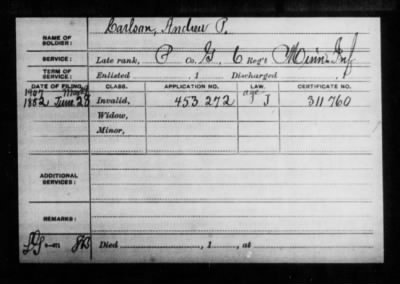 Carlson, Andrew P.
NAME OF SOLDIER:
SERVICE: Late rank, P Co. G, 6 Reg't Minn Inf
TERM OF SERVICE: Enlisted , 1 Discharged
DATE OF FILING. CLASS. APPLICATION NO. LAW. CERTIFICATE NO.
1907
1882 June 28 Invalid, 453 272 age J 311 760
Widow,
Minor,
ADDITIONAL SERVICES:
REMARKS:
Died , 1 , at